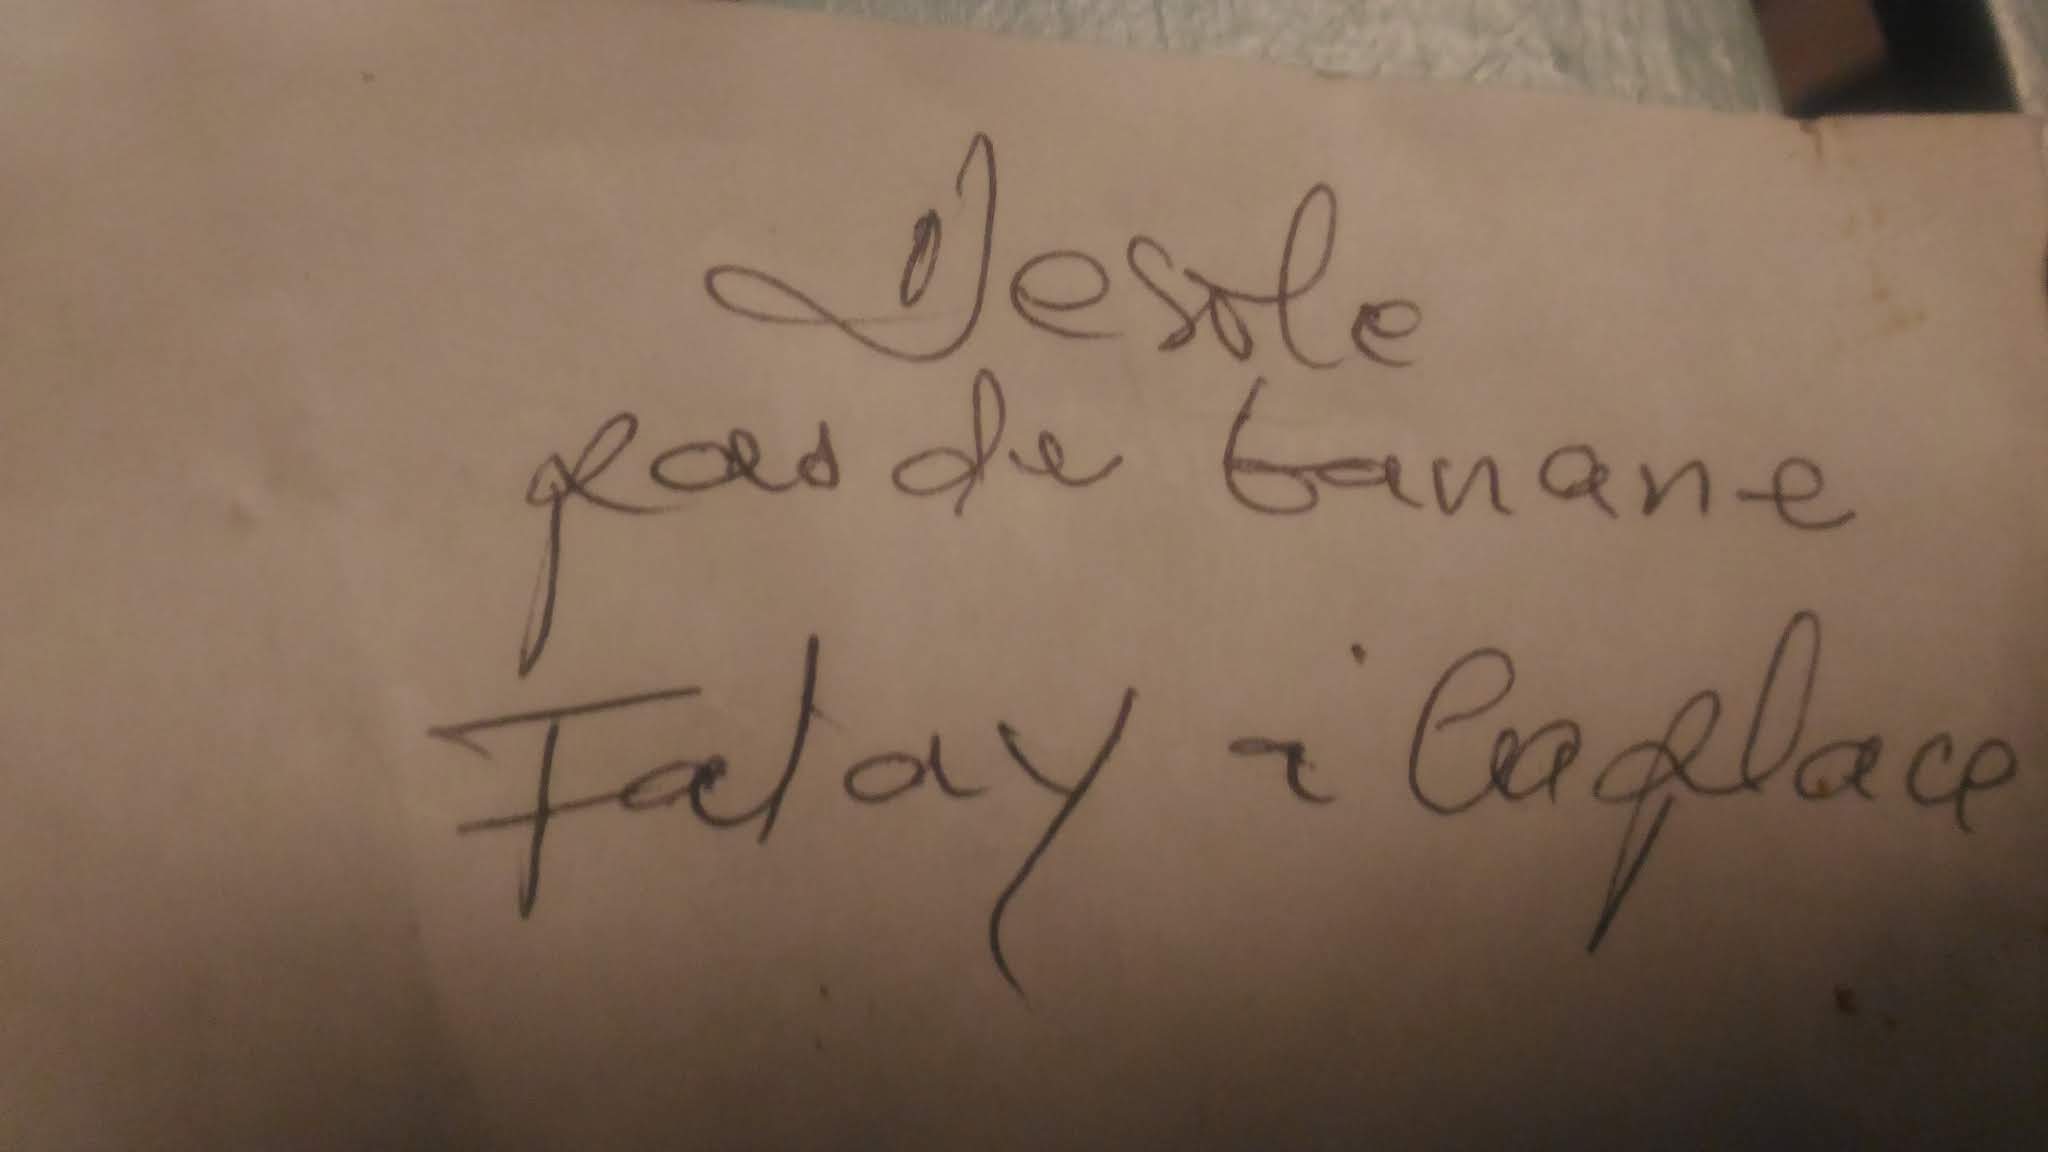 Desole
pas de banane
Fatay a laplace